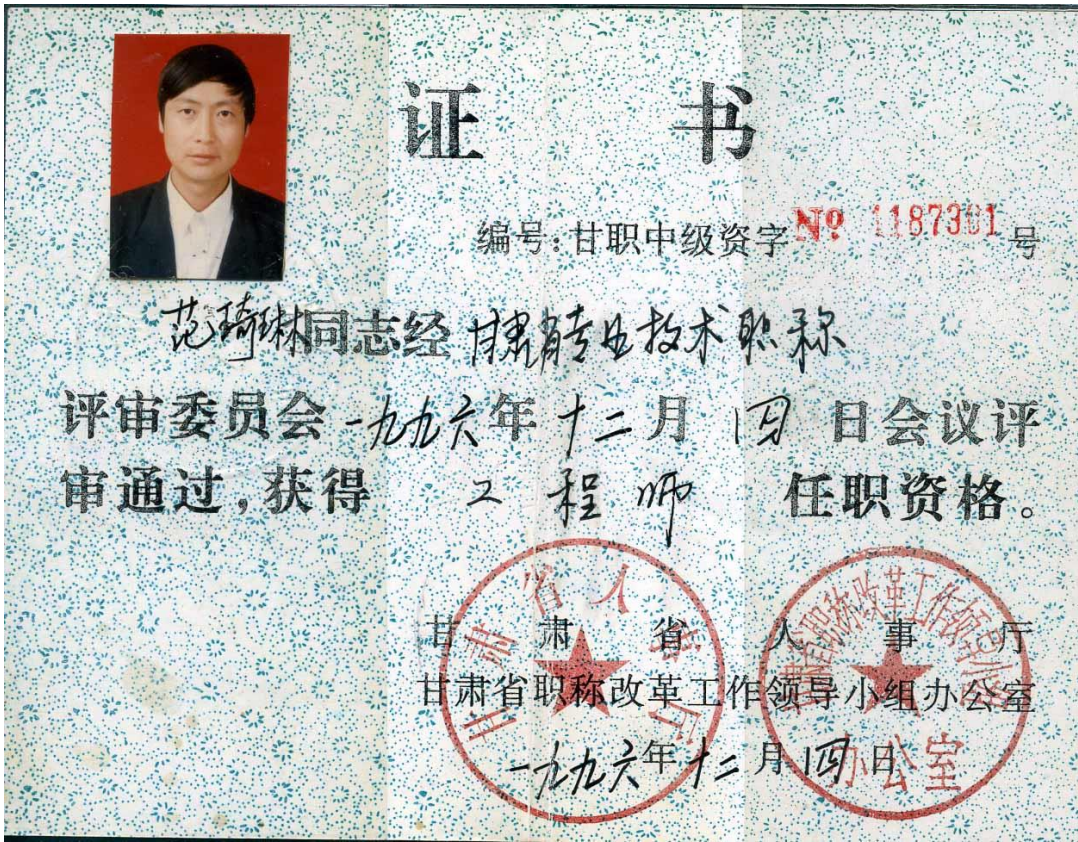 证 书
编号:甘职中级资字 № 1187301 号
范琦琳同志经 甘肃省专业技术职称
评审委员会一九九六年十二月四日会议评
审通过,获得 工程师 任职资格。
甘肃省人事厅
甘肃省职称改革工作领导小组办公室
一九九六年十二月四日
甘肃省人事厅
甘肃省职称改革工作领导小组
办公室